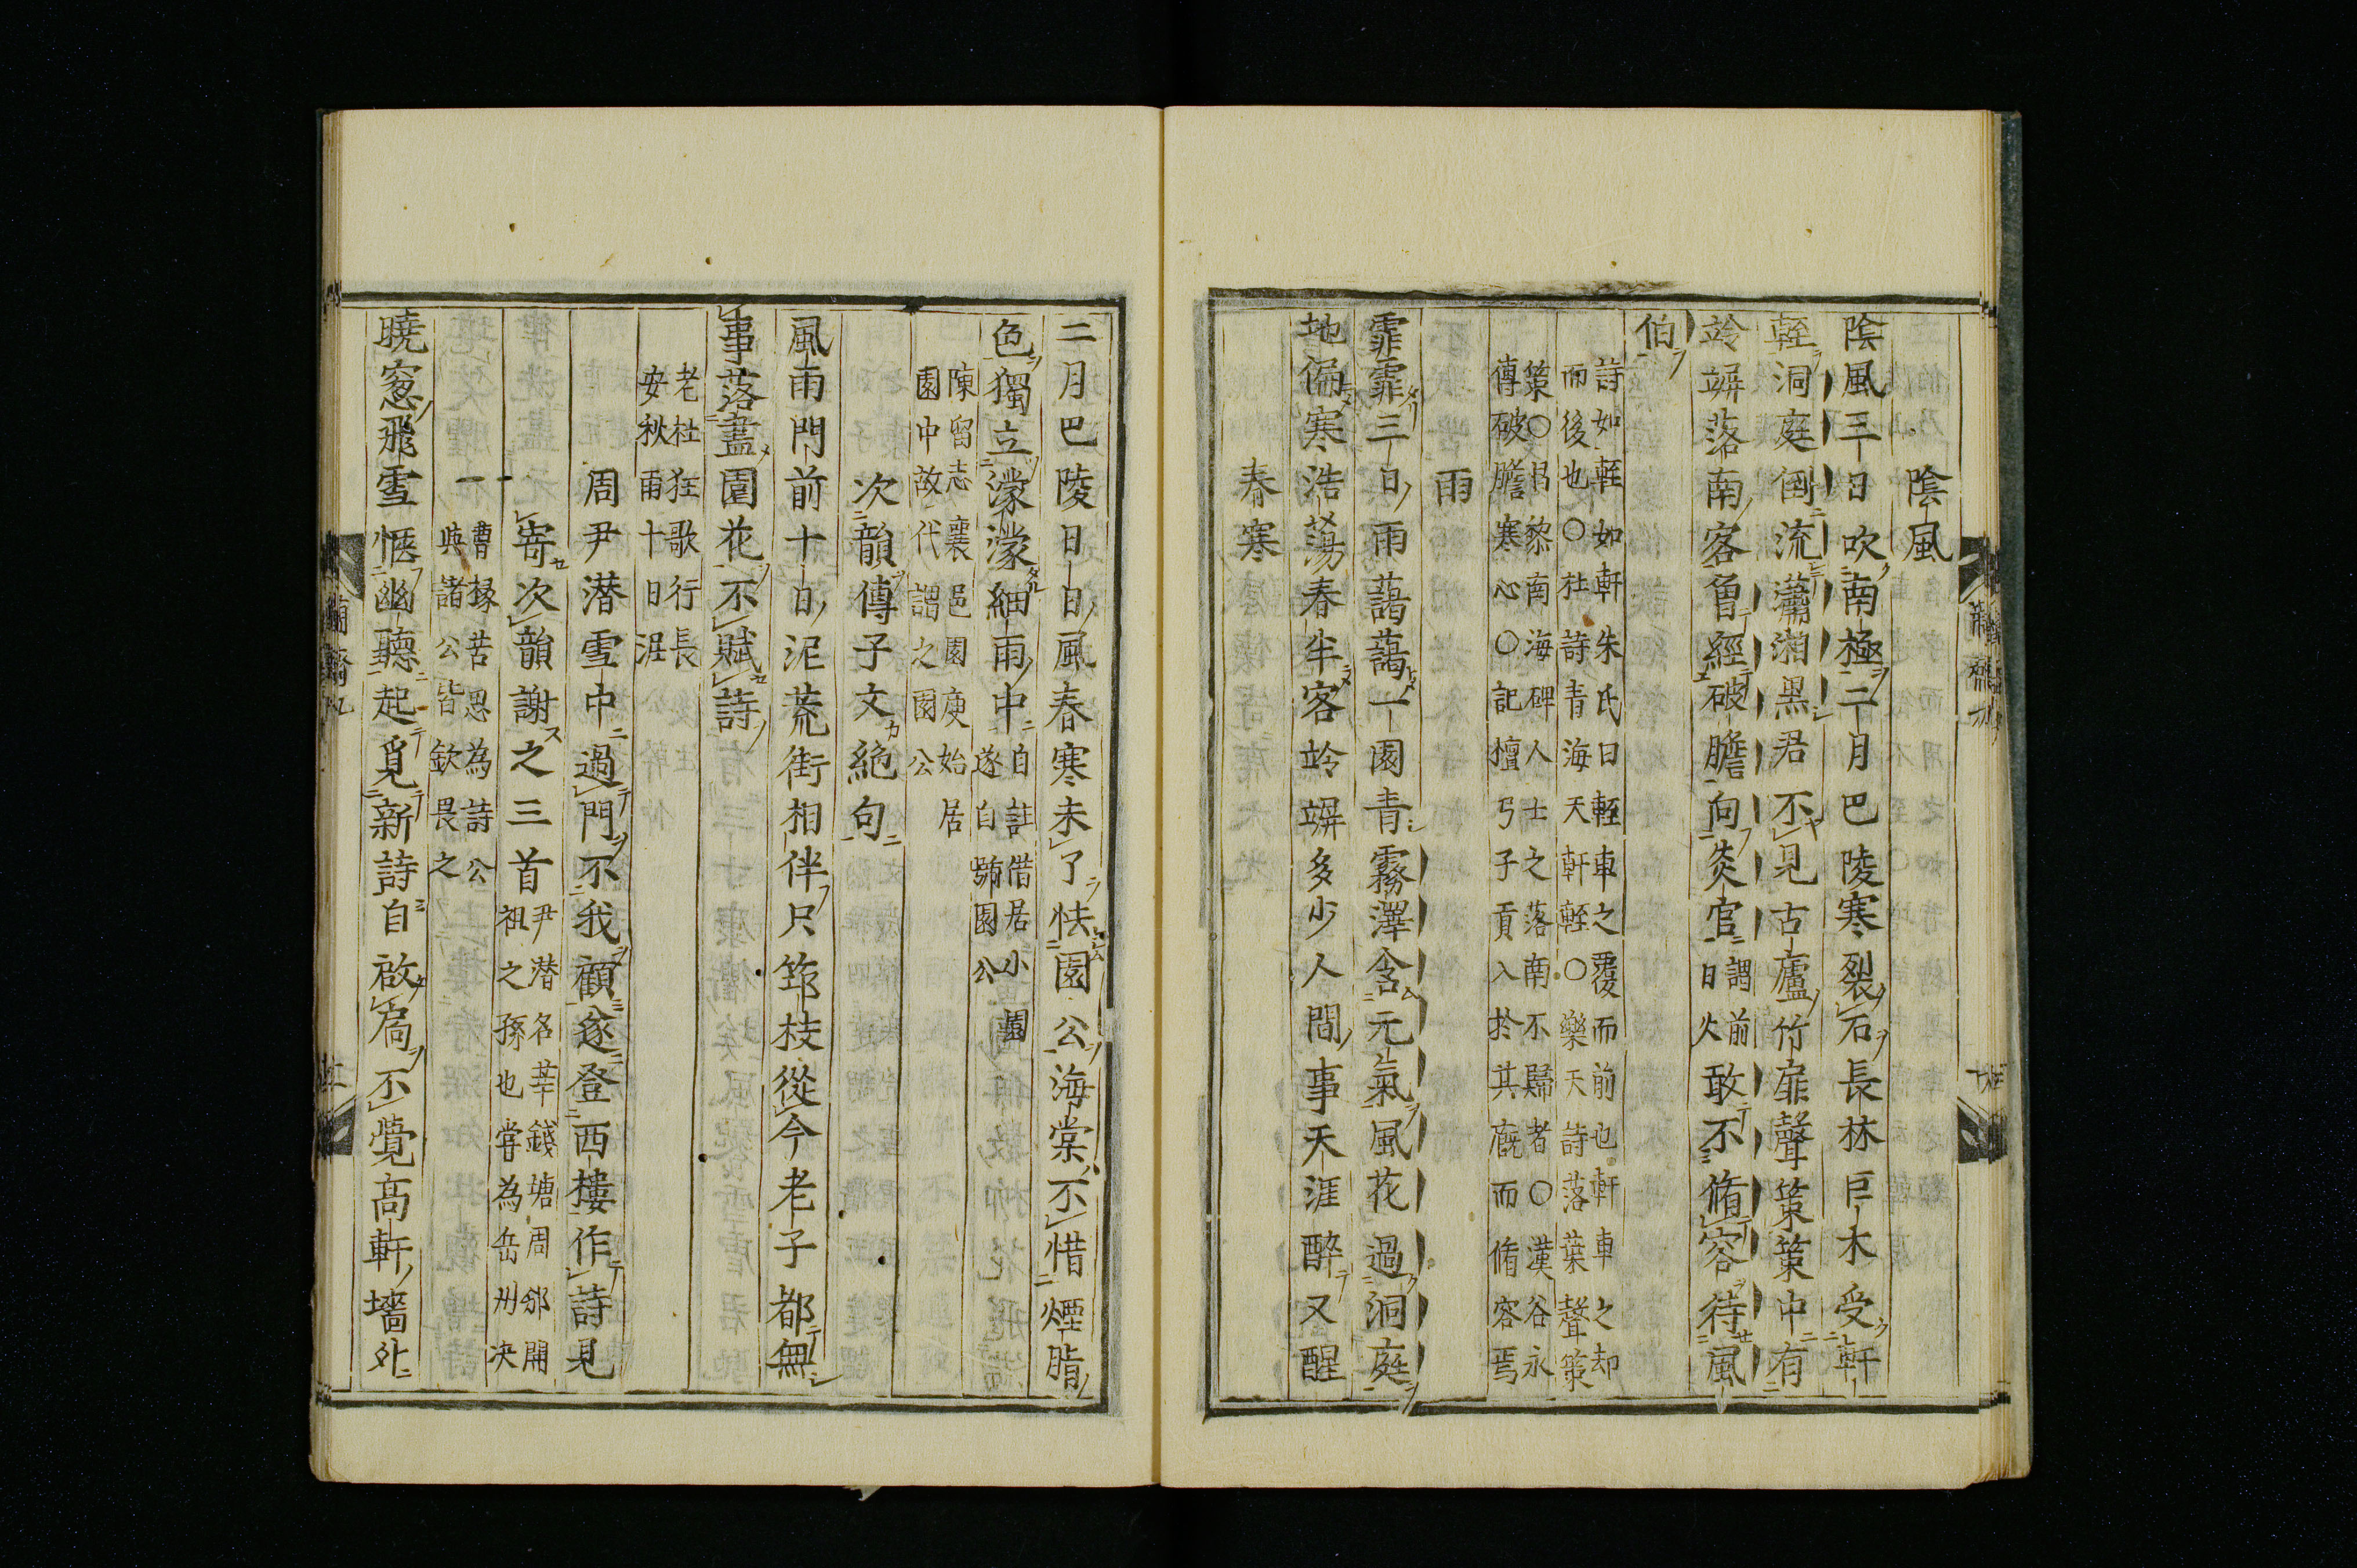 陰風
陰風三日吹南極二月巴陵寒裂石長林巨木受軒
輊洞庭倒流瀟湘黒君不見古廬竹扉聲策策中有
竛竮落南客曾經破膽向炎官謂前日火敢不脩容待風
伯
詩如輊如軒朱氏曰輊車之覆而前也軒車之却
而後也○杜詩青海天軒輊○樂天詩落葉聲策
策○呂黎南海碑人士之落南不歸者○漢谷永
傳破膽寒心○記檀弓子貢入於其廐而脩容焉
雨
霏霏三日雨藹藹一園青霧澤含元氣風花過洞庭
地偏寒浩蕩春半客竛竮多少人間事天涯醉又醒
春寒
二月巴陵日日風春寒未了怯園公海棠不惜煙脂
色獨立濛濛細雨中自註借居小園遂自號園公
陳留志襄邑園庾始居
園中故代謂之園公
次韻傳子文絶句
風雨門前十日泥荒街相伴只筇枝從今老子都無
事落盡園花不賦詩
老杜狂歌行長
安秋雨十日泥
周尹潜雪中過門不我顧遂登西樓作詩見
寄次韻謝之三首尹潜名莘錢塘周邠開祖之孫也甞為岳州决
曹掾苦思為詩公
與諸公皆欽畏之
曉窓飛雪愜幽聽起覓新詩自啟扃不覺高軒墻外